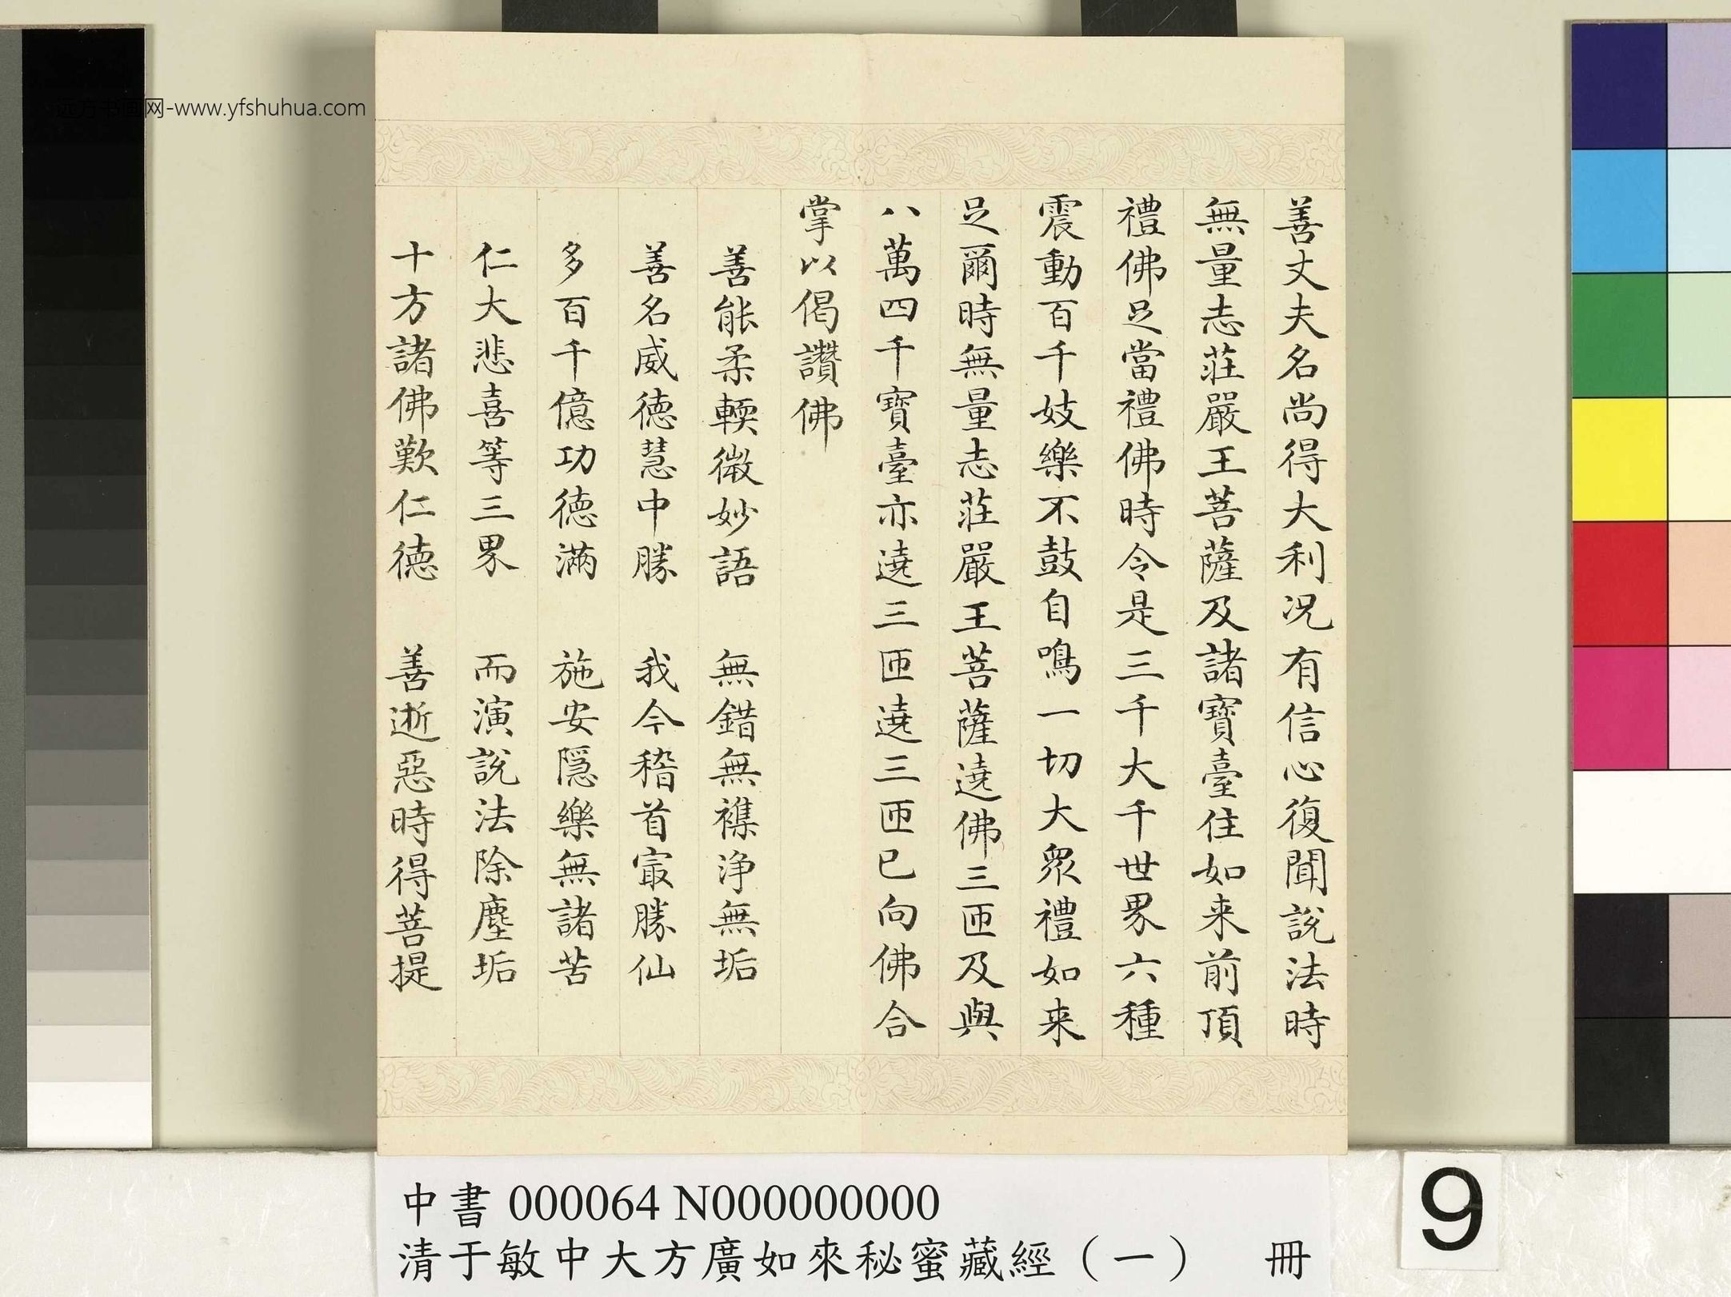 善丈夫名尚得大利况有信心復聞說法時
無量志莊嚴王菩薩及諸寶臺住如来前頂
禮佛足當禮佛時令是三千大千世界六種
震動百千妓樂不鼓自鳴一切大眾禮如来
足爾時無量志莊嚴王菩薩遶佛三匝及與
八萬四千寶臺亦遶三匝遶三匝已向佛合
掌以偈讚佛
善能柔輭微妙語 無錯無襍淨無垢
善名威德慧中勝 我今稽首㝡勝仙
多百千億功德滿 施安隱樂無諸苦
仁大悲喜等三界 而演說法除塵垢
十方諸佛歎仁德 善逝惡時得菩提
远方书画网-www.yfshuhua.com
中書 000064 N000000000
清于敏中大方廣如來秘蜜藏經（一） 冊
9